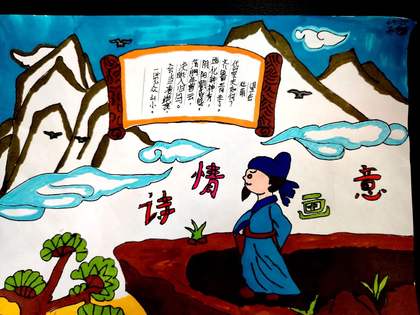 望岳
杜甫
岱宗夫如何?
齐鲁青未了。
造化钟神秀,
阴阳割昏晓。
荡胸生层云,
决眦入归鸟。
会当凌绝顶,
一览众山小。
诗情画意